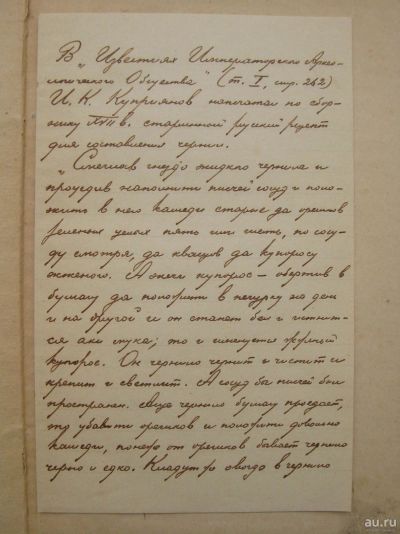 В „Известиях Императорского Архео-
логического Общества" (т. I, стр. 262)
И. К. Куприянов напечатал по сбор-
нику XVII в. старинный русский рецепт
для составления чернил.
„ гнездо жидкого чернила и
процедив наполнити сосуд и поло-
жить в него камеди старые да орешков
зеленых целых пять или шесть, по сосу-
ду смотря, да квасцов да купоросу
жженого. А жечи купорос – обертив в
бумагу да положити в печурку на день
и на другой и он станет бел и
ся аки мука; то и именуется жженый
купорос. Он чернило чернит и чистит и
крепит и светлит. А сосуд бы был
пространен. Аще чернило бумагу проедает,
то убавити орешков и положити довольно
камеди, понеже от орешков бывает чернило
черно и едко. Кладут же иногда в чернило
au.ru